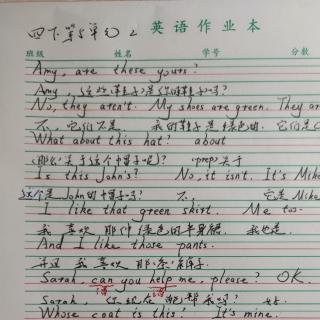 四下第5单元2 英语作业本
班级 姓名 学号 分数
Amy, are these yours?
Amy, 这些鞋子是你的鞋子吗?
No, they aren't. My shoes are green. They are
不, 它们不是 我的鞋子是绿色的. 它们是
What about this hat? about
(那么)关于这个帽子呢)? (prep)关于
Is this John's? No, it isn't. It's Mike
这个是John的帽子吗? 不, 它是Mike
I like that green skirt. Me too.
我喜欢那件绿色的半身裙. 我也是.
And I like those pants.
并且我喜欢那条裤子.
Sarah, can you help me, please? OK.
Sarah, 你现在 能帮我吗? 好.
Whose coat is this? It's mine.